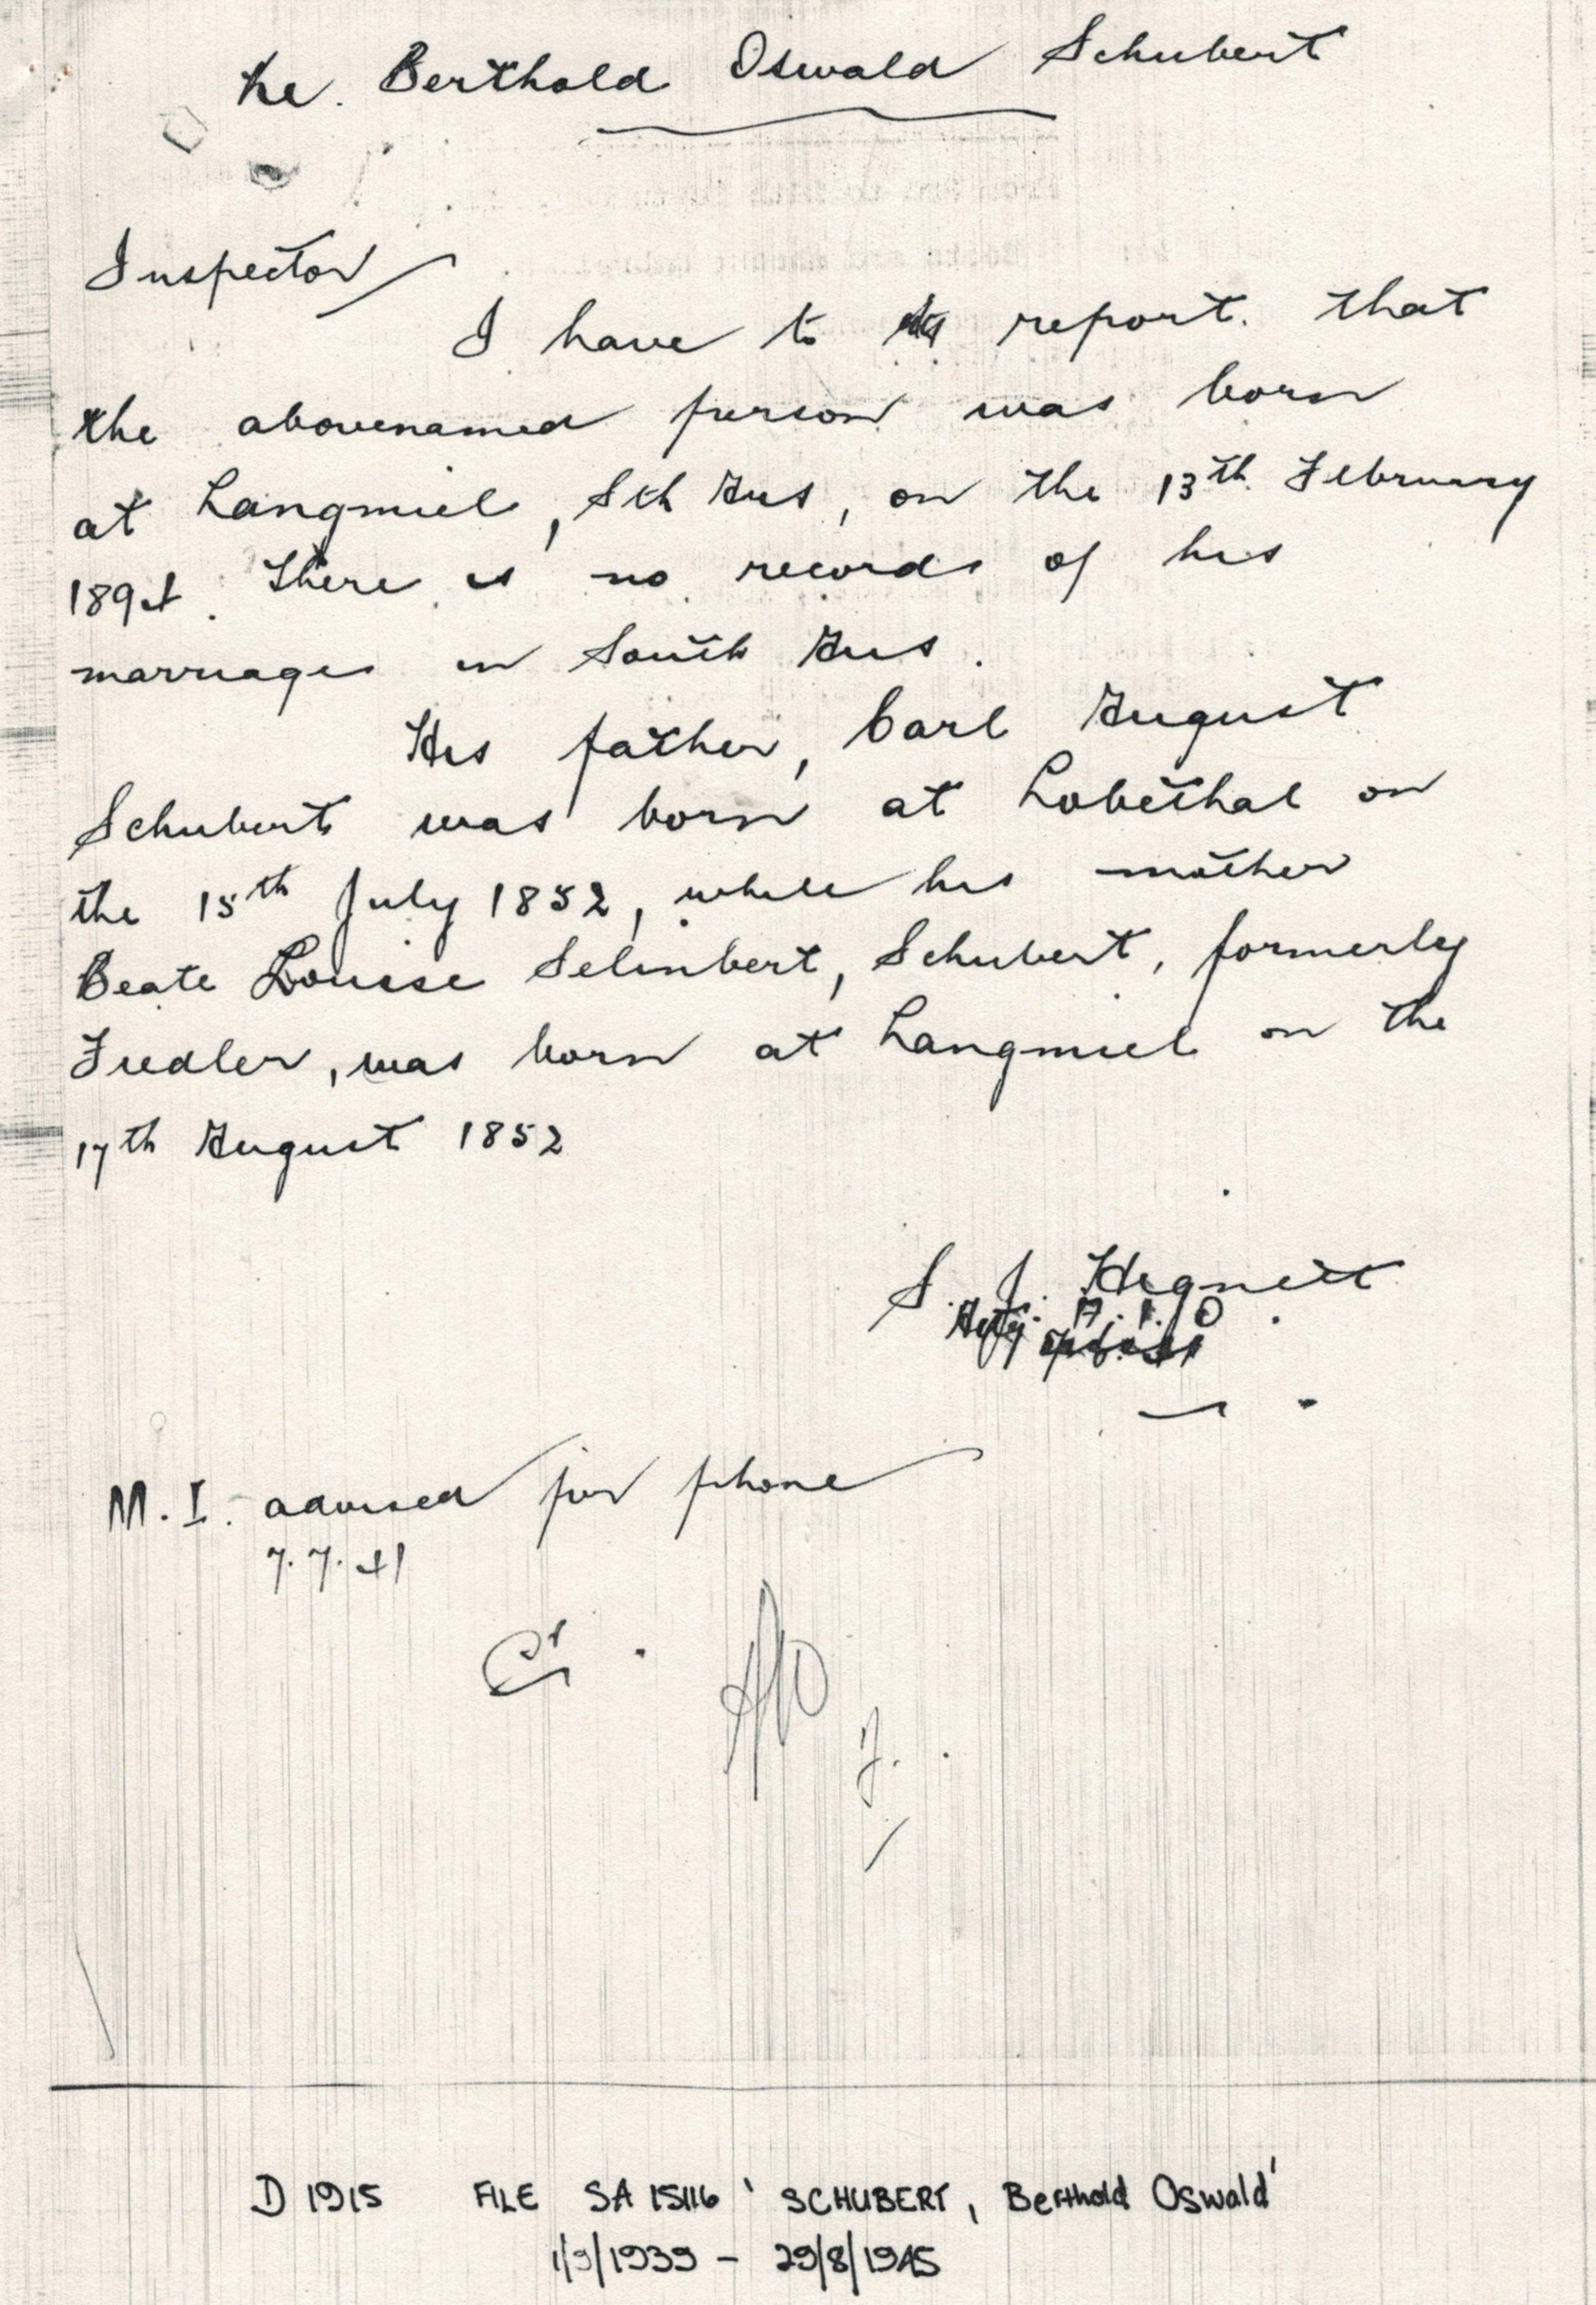 Re. Berthold Oswald Schubert
Inspector
I have to report. that
the abovenamed person was born
at Langmiel, Sth Aus, on the 13th February
1894. There is no records of his
marriage in South Aus.
His father, Carl August
Schubert was born at Lobethal on
the 15th July 1852, while his mother
Beate Louise Selinbert, Schubert, formerly
Fiedler, was born at Langmiel on the
17th August 1852
S. J.
M.I. advised per phone
7.7.41
D 1915 FILE SA 15116 'SCHUBERT, Berthold Oswald'
1/9/1939 - 29/8/1945